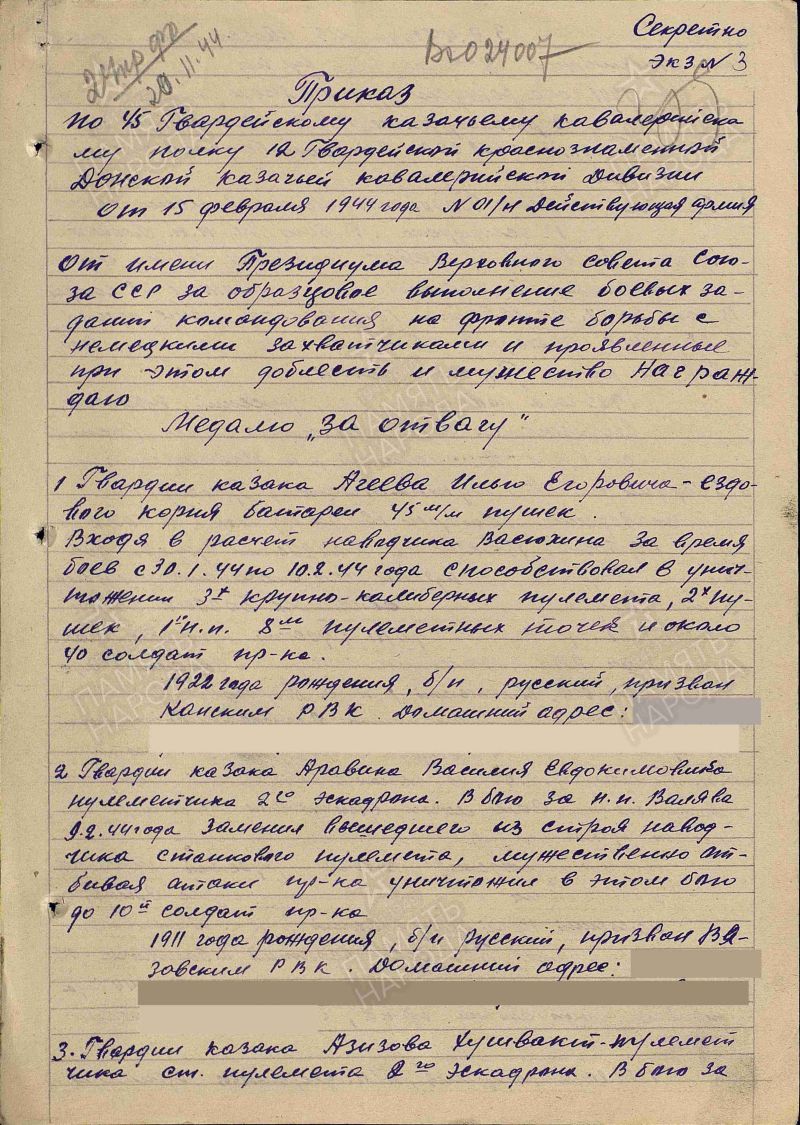 Секретно
экз N 3
20.11.44
Вх024007
Приказ
по 45 Гвардейскому казачьему кавалерийско
му полку 12 Гвардейской краснознаменной
Донской казачьей кавалерийской Дивизии
от 15 февраля 1944 года N 01/н Действующая армия
От имени Президиума Верховного совета Сою-
за ССР за образцовое выполнение боевых за-
даний командования на фронте борьбы с
немецкими захватчиками и проявленные
при этом доблесть и мужество Награж-
даю
Медалю „За отвагу"
1 Гвардии казака Агеева Илью Егоровича - ездо-
вого корня батареи 45 м/м пушек.
Входя в расчет наводчика Васюхина за время
боев с 30.1.44 по 10.2.44 года способствовал в унич-
тожении 3х крупно-калиберных пулемета, 2х пу-
шек, 1 н.п. 8ми пулеметных точек и около
40 солдат пр-ка.
1922 года рождения, б/п, русский, призван
Канским РВК. Домашний адрес:
2 Гвардии казака Аравина Василия Евдокимовича
пулеметчика 2го эскадрона. В бою за н.п. Валява
9.2.44 года заменил вышедшего из строя навод-
чика станкового пулемета, мужественно от-
бивая атаки пр-ка уничтожил в этом бою
до 10и солдат пр-ка
1911 года рождения, б/п русский, призван Вя-
зовским РВК. Домашний адрес:
3. Гвардии казака Азизова Хушвакт-пулемет
чика ст. пулемета 2го эскадрона. В бою за
ПАМЯТЬ
НАРОДА